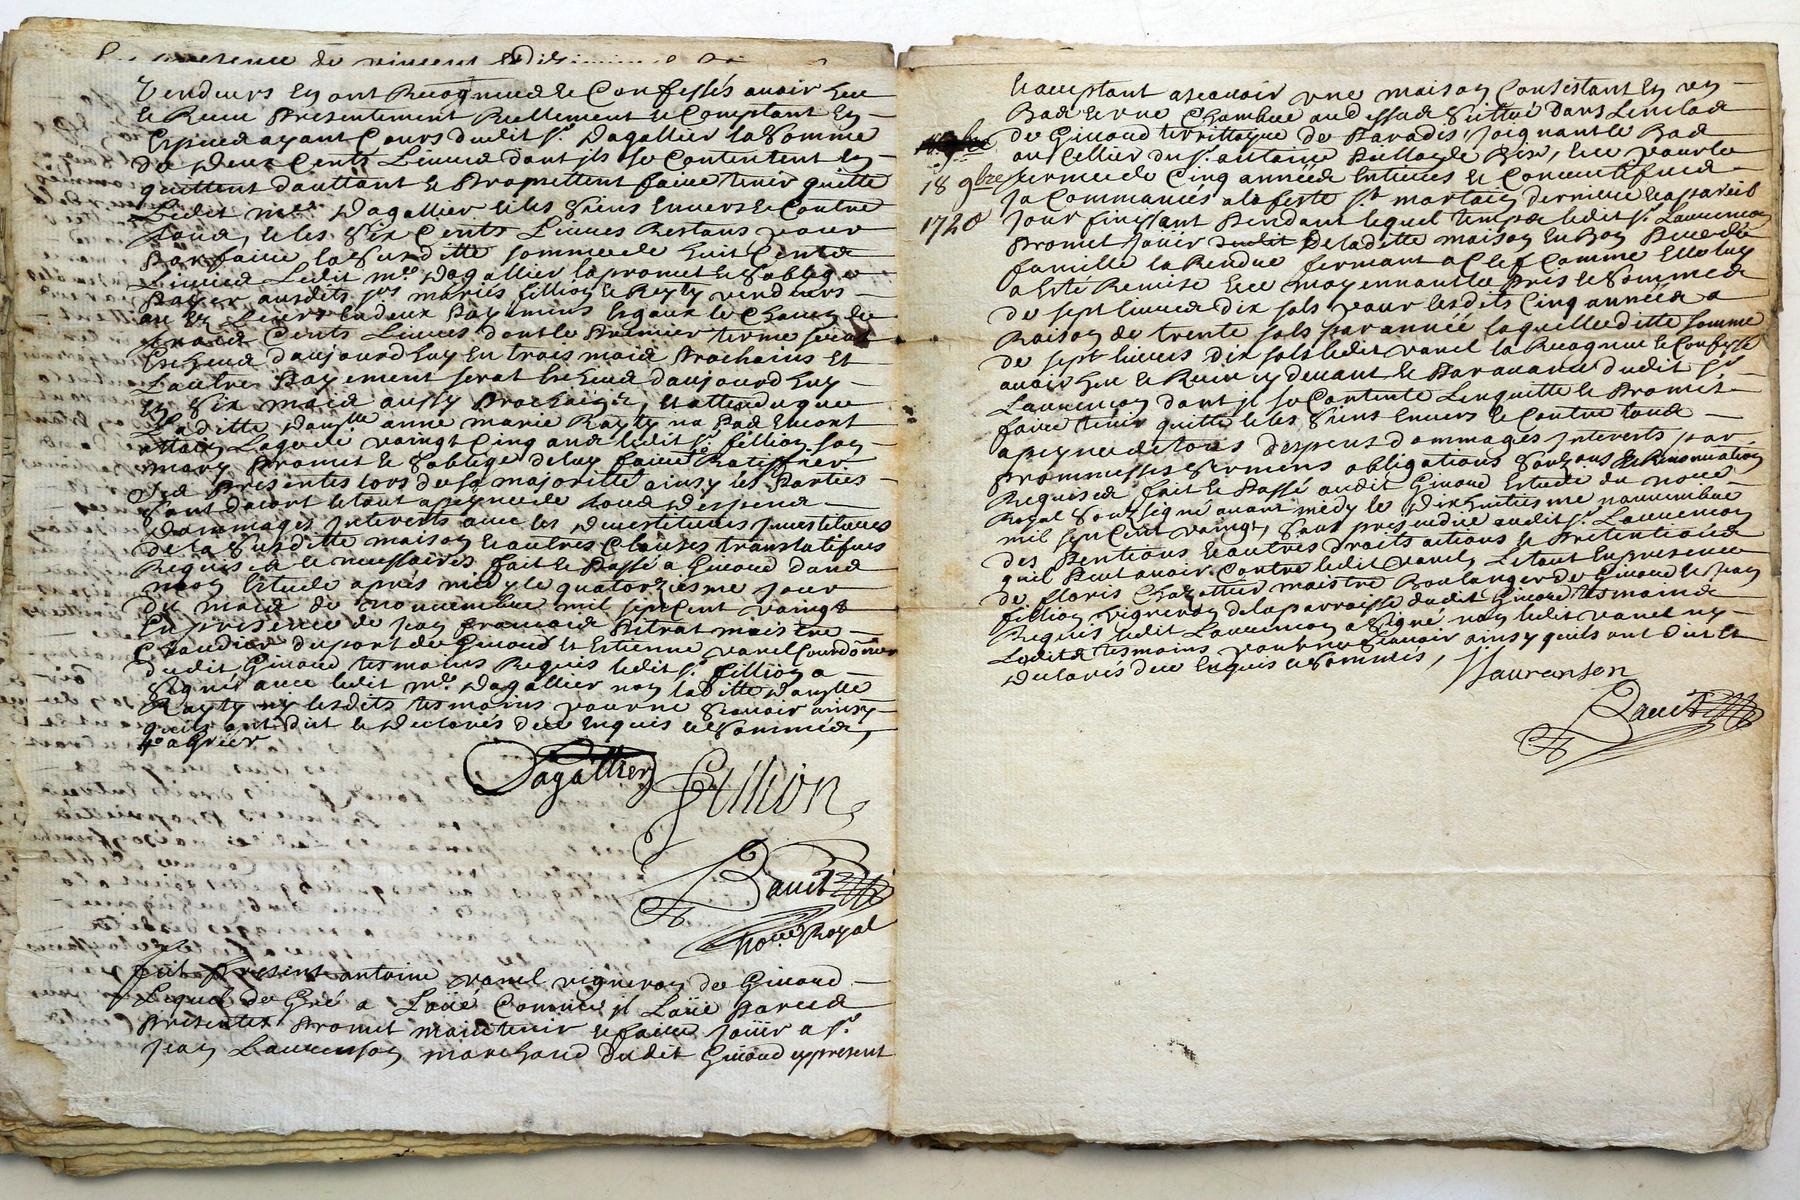 vendeurs en ont Recogneu et Confessés avoir heu
et Receu presentement Reellement et Comptant En
Espece ayant Cours dudit sr. Dagallier la somme
de deux Cents Livres dont ils se Contentent En
quittent d'auttant et Promettent faire tenir quitte
Ledit me. Dagallier et les siens Envers et Contre
tous, et les six Cents Livres Restans pour
parfaire la susditte somme de huit Cents
Livres Ledit me. Dagallier la promet et s'oblige
payer ausdits srs mariés fillion et Rayty vendeurs
ou En Leurs En deux payemens Egaux et Chacun de
trois Cents Livres dont le premier terme serat
Escheu d'aujourd'huy En trois mois prochains Et
L'autre payement serat Escheu d'aujourd'huy
En six mois aussy prochains, Et attendu que
Laditte damlle anne marie Rayty na pas Encore
attain Laage de vaingt Cinq ans ledit sr. fillion son
mary promet et s'oblige de luy faire Ratiffier
Ces presentes lors de sa majoritté ainsy les parties
sont dacort le tout a peyne de tous despens
dommages Interests avec les devestitures Investitures
de la susditte maison et autres Clauses translatifves
Requises et necessaires fait et passé a Givord dans
mon Estude apres midy le quatorziesme jour
du mois de novembre mil sept Cent vaingt
En presence de jean francois pitrat maistre
Chaudier du port de Givord et Estienne vanel Courdonier
dudit Givord tesmoins Requis ledit sr. fillion a
signé avec ledit me. Dagallier non laditte damlle
Rayty ny lesdits tesmoins pour ne sçavoir ainsy
quils ont dit et declarés de ce Enquis et sommés,
Dagallier fillion
not.re Royal
fut present antoine vanel vigneron de Givord
Lequel de Gré a Loüé Comme il Loüe par ces
presentes promet maintenir et faire joüir a sr.
jean Laurenson marchand dudit Givord cy present
Et aceptant asçavoir une maison Consistant En un
Bas et une Chambre au dessus scittué dans Lenclos
de Givord territtoire de Paradis, joignant le Bas
ou Cellier du sr. antoine
18 9bre
1720
terme de Cinq années Entieres et Consecutifves
Ja Commancés a la feste st. martin derniere et a pareil
jour finissant pendant lequel temps ledit sr. Laurenson
promet joüir dudit de laditte maison En Bon pere de
famille la Rendre fermant a Clef Comme Elle luy
a Esté Remise et ce moyennant le prix et somme
de sept livres dix sols pour lesdits Cinq années a
Raison de trente sols par année laquelle ditte somme
de sept livres dix sols ledit vanel la Recogneu et Confesse
avoir heu et Receu cy devant et par avance dudit sr.
Laurenson dont il se Contente L'en quitte et promet
faire tenir quitte et les siens Envers et Contre tous
a peyne de tous despens dommages Interests par
prommesses sermens obligations et Renonciation
Requises fait et passé audit Givord Estude du not.re
Royal soubsigné avant midy le dixhuitiesme novembre
mil sept Cent vaingt, sans prejudice audit sr. Laurenson
des pentions et autres droits actions et pretentions
quil peut avoir Contre ledit vanel, Le tout En presence
de floris Chazottier maistre Boulanger de Givord et jean
fillion vigneron de la parroisse dudit Givord tesmoins
Requis ledit Laurenson a signé non ledit vanel ny
Lesdits tesmoins pour ne sçavoir ainsy quils ont dit et
declarés de ce Enquis et sommés,
Laurenson